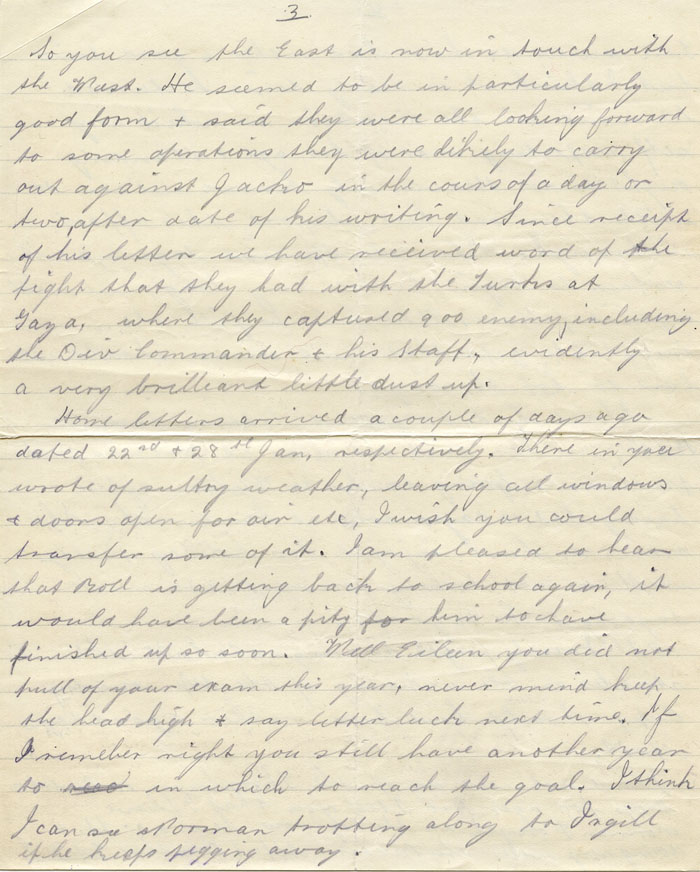 3.
So you see the East is now in touch with
the West. He seemed to be in particularly
good form + said they were all looking forward
to some operations they were likely to carry
out against Jacko in the course of a day or
two, after date of his writing. Since receipt
of his letter we have received word of the
fight that they had with the Turks at
Gaza, where they captured 900 enemy, including
the Div Commander & his Staff, evidently
a very brilliant little dust up.
Home letters arrived a couple of days ago
dated 22nd + 28th Jan, respectively. There in you
wrote of sultry weather, leaving all windows
& doors open for air etc, I wish you could
transfer some of it. I am pleased to hear
that Roll is getting back to school again, it
would have been a pity for him to have
finished up so soon. Well Eileen you did not
pull of your exam this year, never mind keep
the head high & say better luck next time. If
I remember right you still have another year
to in which to reach the goal. I think
I can see Norman trotting along to
if he keeps pegging away.